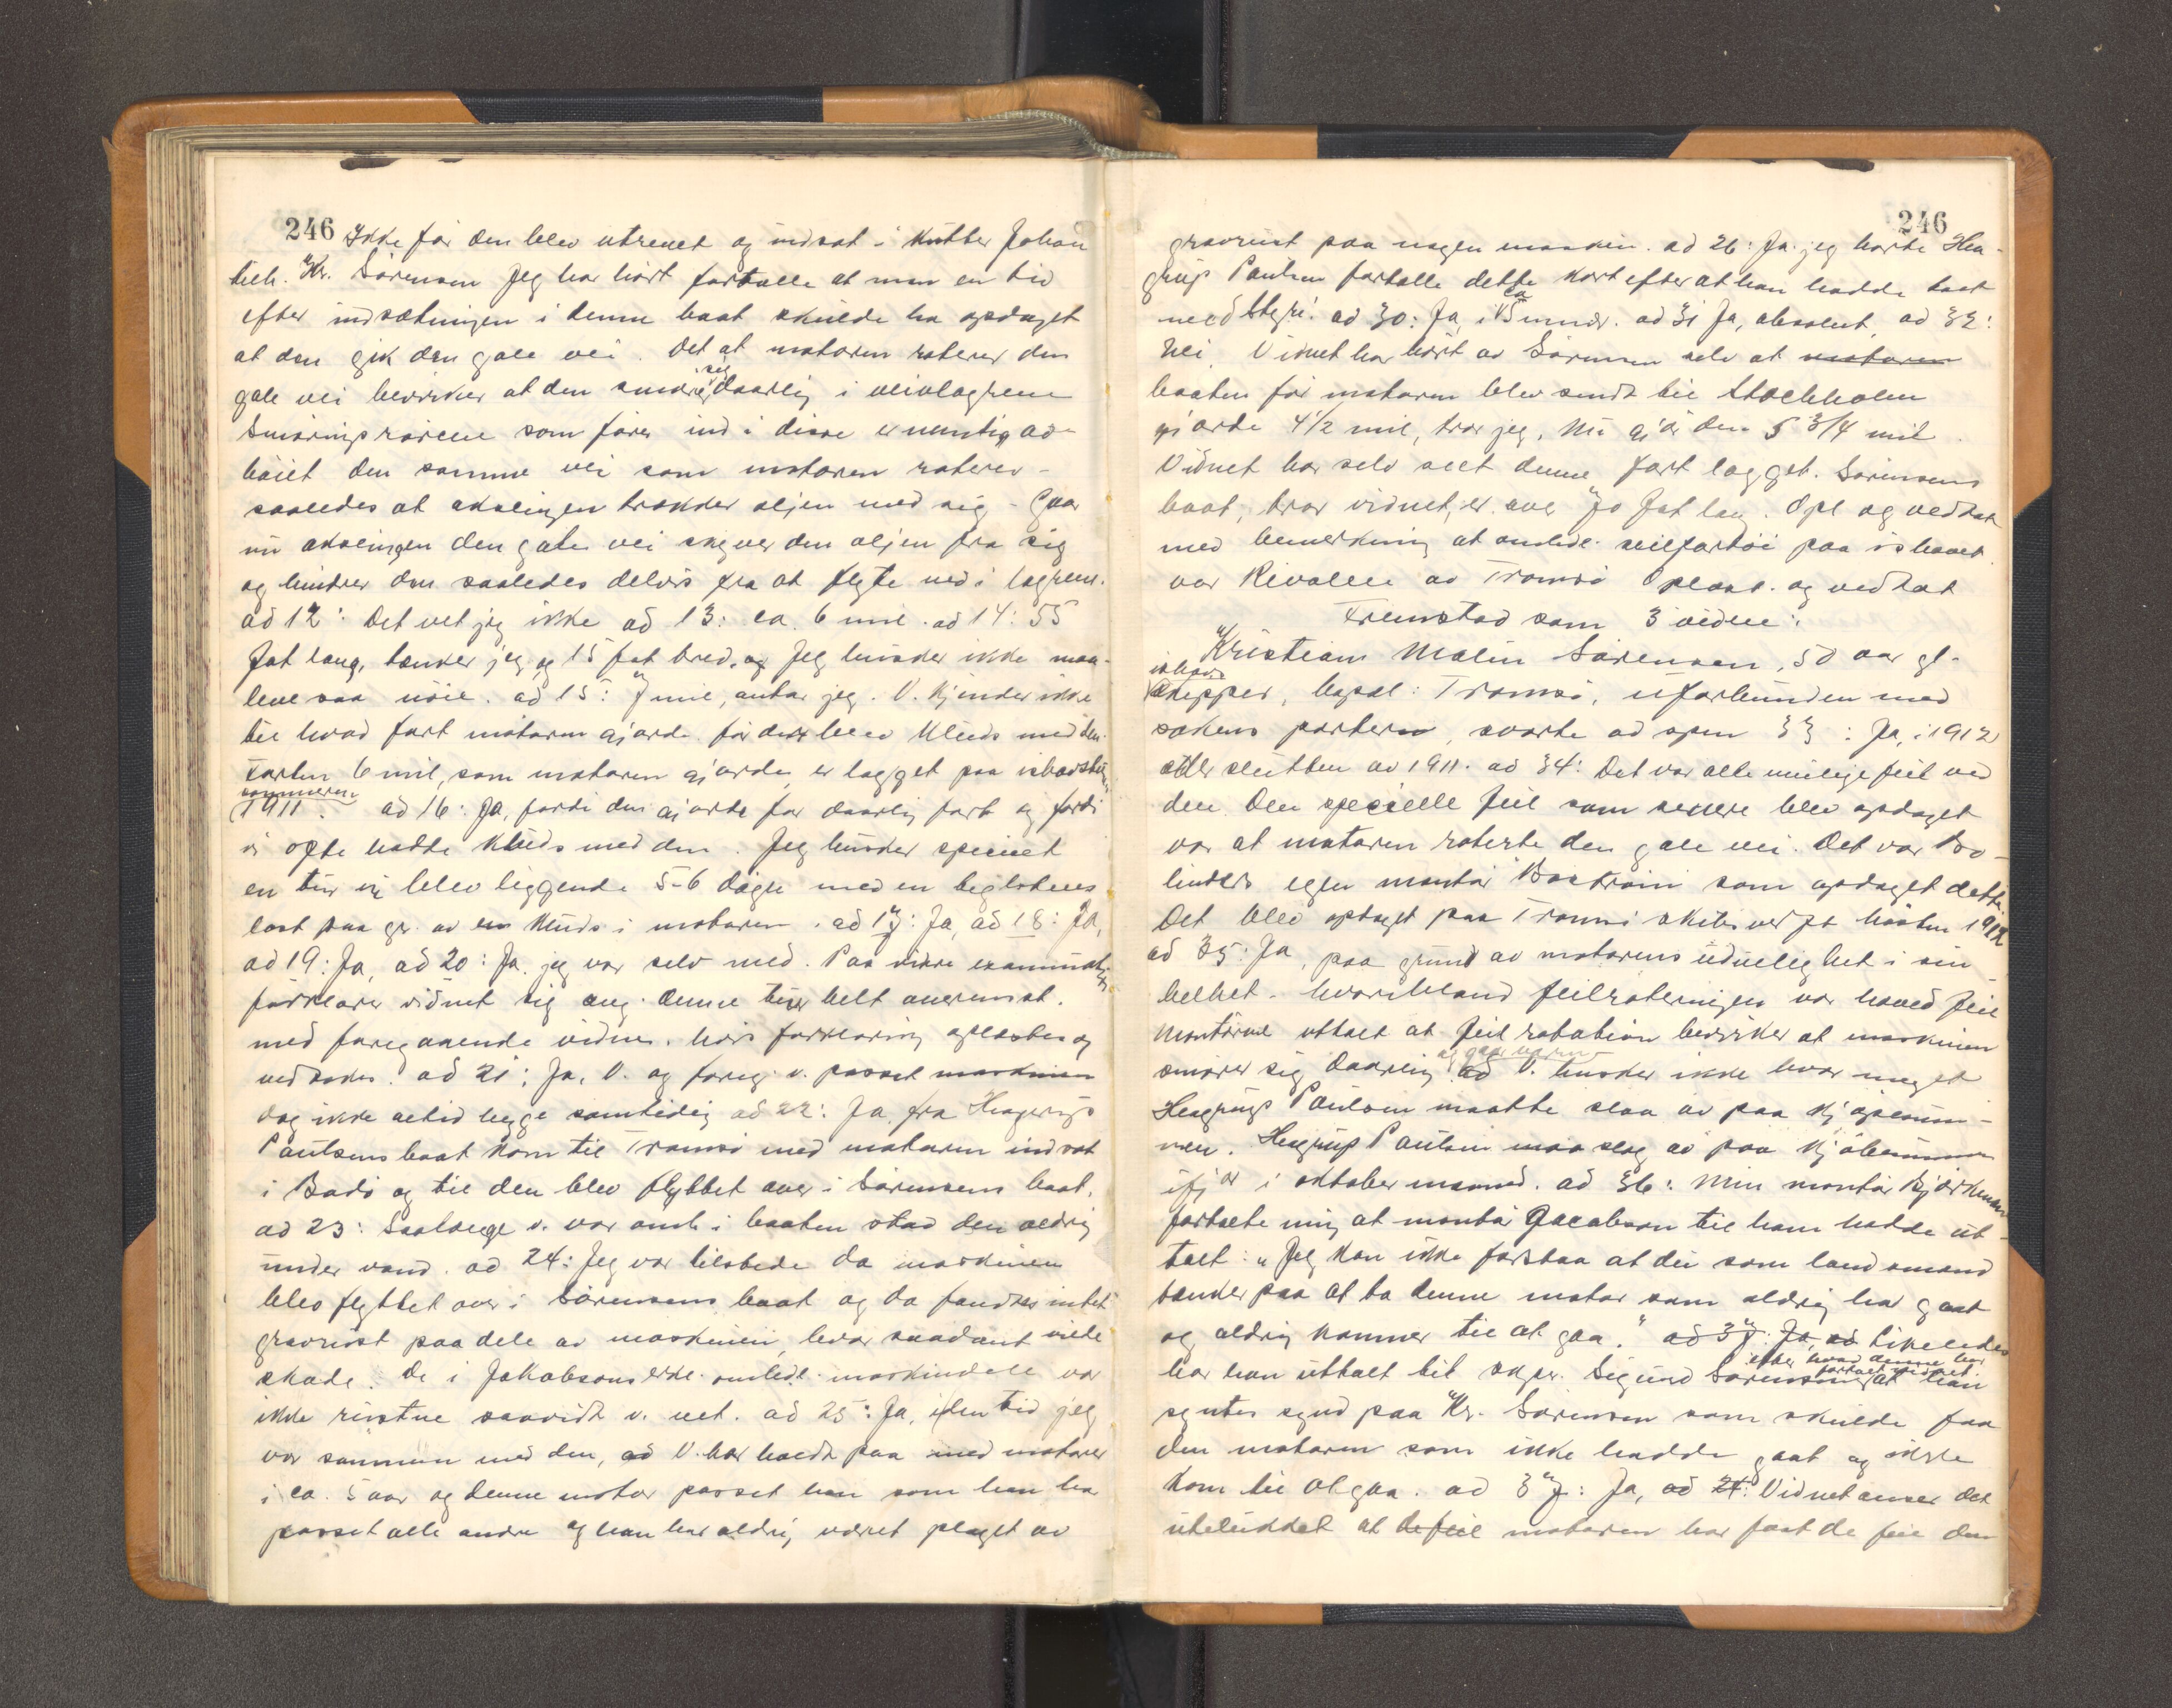 246
Ikke før den blev utrenet og indsat i Kutter Johan
tilh. Kr. Sörensen Jeg har hört fortælle at man en tid
efter indsætningen i denne baat skulde ha opdaget
at den gik den gale vei. Det at motoren roterer den
gale vei bevirker at den smører sig daarlig i veivlagrene
Smøringsrørene som fører ind i disse er nemlig av-
böiet den samme vei som motoren roterer -
saaledes at akslingen trækker oljen med sig - Gaar
nu akslingen den gale vei skyver den oljen fra sig
og hindrer den saaledes delvis fra at flyte ned i lagrene.
ad 12: Det vet jeg ikke ad 13: ca. 6 mil. ad 14: 55
fot lang, tænker jeg og 15 fot bred. Jeg husker ikke maa-
lene saa nöie. ad 15: 7 mil, antar jeg. V. kjender ikke
til hvad fart motoren gjorde før der blev kluds med den.
Farten 6 mil, som motoren gjorde, er logget paa ishavstur
sommeren 1911. ad 16: Ja, fordi den gjorde for daarlig fart og fordi
vi ofte hadde kluds med den. Jeg husker specielt
en tur vi blev liggende 5-6 dögn med en
last paa gr. av kluds i motoren. ad 17: Ja, ad 18: Ja,
ad 19: Ja, ad 20: Ja, jeg var selv med. Paa videre examination
forklarer vidnet sig ang. denne tur helt overensst.
med foregaaende vidne, hvis forklaring oplæstes og
vedtokes. ad 21: Ja, V. og foreg. v. passet maskinen
dog ikke altid begge samtidig ad 22: Ja, fra Hagerups
Paulsens baat kom til Tromsö med motoren indsat
i Bodö og til den blev flyttet over i Sörensens baat.
ad 23: Saalænge v. var omb. i baaten stod den aldrig
under vand. ad 24: Jeg var tilstede da maskinen
blev flyttet over i Sörensens baat og da fandtes intet
gravrust paa dele av maskinen, hvor saadant vilde
skade. De i Jakobsons erkl. omhdl. maskindele var
ikke rustne saavidt v. vet. ad 25: Ja, i den tid jeg
var sammen med den, V. har holdt paa med motorer
i ca. 5 aar og denne motor passet han som han har
passet alle andre og han har aldrig været plaget av
246
gravrust paa nogen maskin. ad 26: Ja. jeg hørte Ha-
gerup Paulsen fortælle dette kort efter at han hadde tat
med Stegri. ad 30: Ja, i ca 5 mndr. ad 31 Ja, absolut, ad 32:
Nei. Vidnet har hört av Sörensen selv at motoren
baaten før motoren blev sendt til Stockholm
gjorde 4 1/2 mil, tror jeg. Nu gjör den 5 3/4 mil.
Vidnet har selv seet denne fart logget. Sörensens
baat, tror vidnet, er over 70 fot lang. Opl. og vedtat
med bemerkning at omhdl. seilfartöi paa ishavet
var Rivalen av Tromsö Oplæst. og vedtat
Fremstod som 3 vidne:
Kristian Malin Sörensen, 50 aar gl.
ishavsskipper, bopæl: Tromsö, uforbunden med
sakens parter, svarte ad spm 33: Ja, i 1912
eller slutten av 1911. ad 34: Det var alle mulige feil ved
den. Den specielle feil som senere blev opdaget
var at motoren roterte den gale vei. Det var Bo-
linders egen montör Boström som opdaget dette
Det blev opdaget paa Tromsö skibsverft hösten 1912
ad 35: Ja, paa grund av motorens uduelighet i sin
helhet - hvoriblandt feilroteringen var hovedfeil
Montörene uttalt at feil rotation bevirker at maskinen
smører sig daarlig og gaar varm V. husker ikke hvor meget
Hagerup Paulsen maatte slaa av paa kjöpesum-
men. Hagerup Paulsen maa slog av paa kjöbesummen
ifjor i oktober maaned. ad 36: Min montör Björkman
fortalte mig at montör Jacobson til ham hadde ut-
talt: „Jeg kan ikke forstaa at du som landsmand
tænker paa at ta denne motor som aldrig har gaat
og aldrig kommer til at gaa." ad 37: Ja, ad Likeledes
har han uttalt til skpr. Sigurd Sörensen efter hvad denne har fortalt vidnet. at han
syntes synd paa Kr. Sörensen som skulde faa
den motoren som ikke hadde gaat og ikke
kom til at gaa. ad 37: Ja, ad 24: Vidnet anser det
utelukket at de feil motoren har faat de feil den